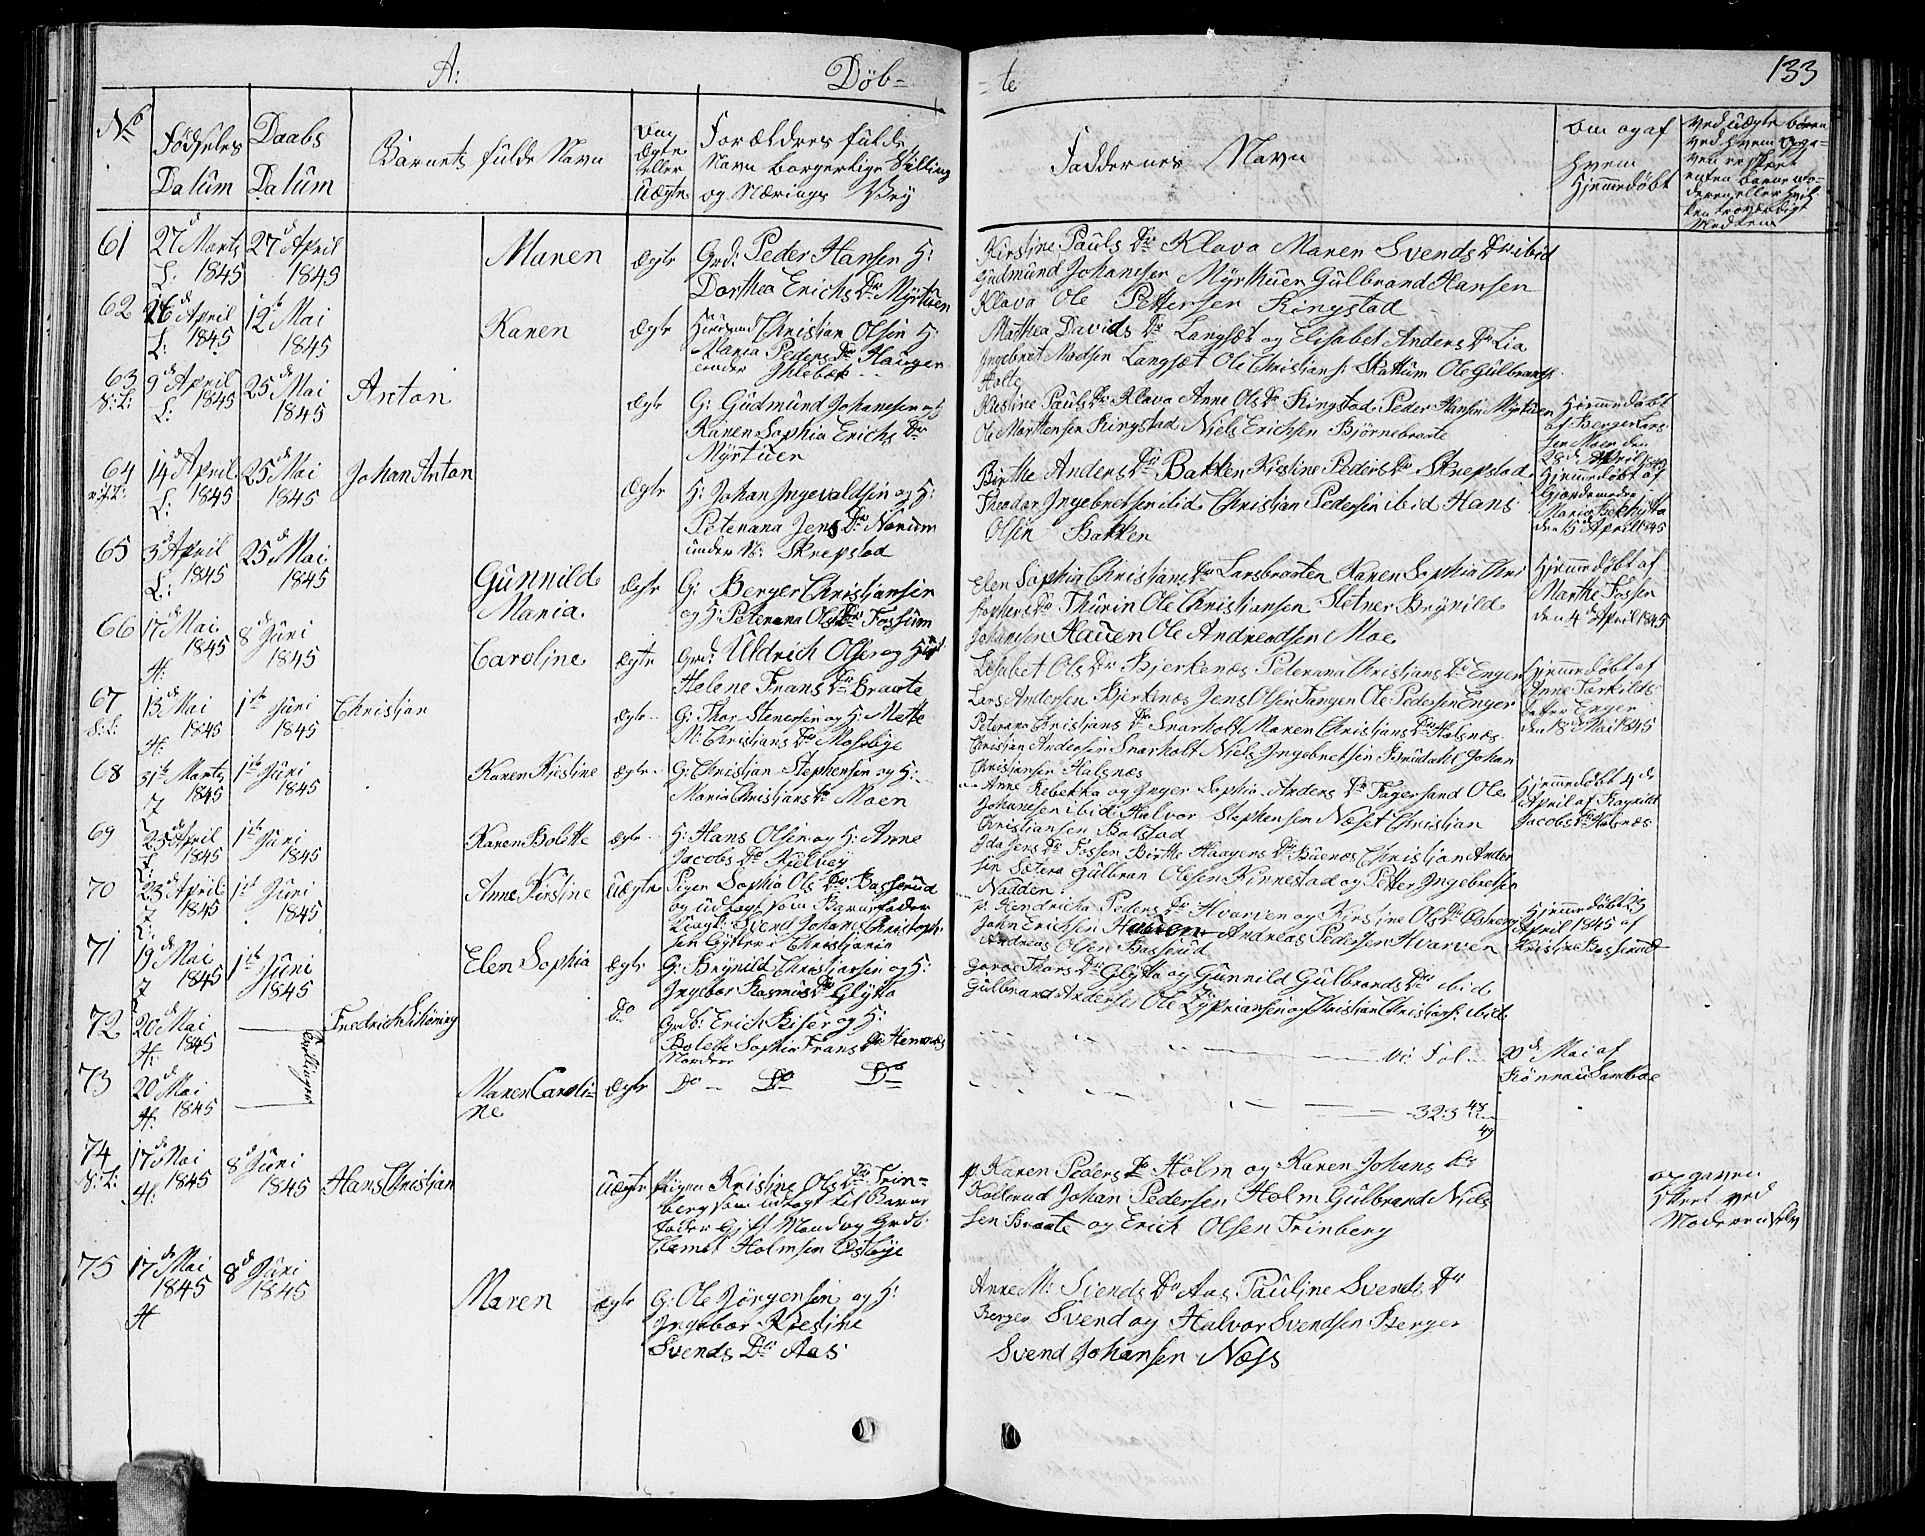 A: Döb=
=te 133
No Födseles Datum Daabs Datum Barnets fulde Navn Om Ægte eller Uægte Forældres fulde Navn borgerlige Stilling og Nærings Vey
Faddernes Navn Om og af hvem Hjemmedöbt
61 27d Marts 1845 27d April 1845 Maren Ægte Grd: Peder Hansen H:
L: Dorthea Erichs Dr Myrtuen
Kirstine Pauls Dr Klava Maren Svends Dr ibid
Gudmund Johannsen Myrthuer Gulbrand Hansen
Klava Ole Pettersen Ringstad
62 26d April 1845 12te Mai 1845 Karen Ægte Christian Olsen H:
L: Maria Peders Dr Hauger
under Ihlebæk
Mathea Davids Dr Langsæt og Elisabet Anders Dr Lia
Ingebret Madsen Langsæt Ole Christians: Skattum Ole Gulbrands:
Holte
63 9d April 1845 25d Mai 1845 Anton Ægte G: Gudmund Johannsen og H
S:L: L: Karen Sophia Erichs Dr
Myrtuen
Kirstine Pauls Dr Klava Anne Ols Dr Ringstad Peder Hansen Myrtuen
Ole Marthensen Ringstad Niels Erichsen Björnebraate
Hjemmedöbt
af Berger Lars
sen Moen den
28d April 1845
64 14d April 1845 25d Mai 1845 Johan Anton Ægte H: Johan Ingevaldsen og H:
L: Peternana Jens Dr Norium
under N: Skrepstad
Birthe Anders Dr Bakken Kirstine Peders Dr Skrepstad
Theodor Ingebretsen ibid Christian Pedersen ibid Hans
Olsen Bakken
Hjemmedöbt af
Gjordemoder
Maria Bekhytta
den 15d April 1845
65 3d April 1845 25d Mai 1845 Gunnild Maria Ægte G: Berger Christiansen
L: og H: Peternana Ols Dr Fossum
Elen Sophia Christians Dr Larsbraaten Karen Sophia Chri
stophers Dr Thurin Ole Christiansen Sletner Brynild
Johansen Hauen Ole Andreadsen Moe
Hjemmedöbt af
Marthe Fossen
den 4d April 1845
66 17d Mai 1845 8d Juni 1845 Caroline Ægte Grd: Uldrich Olsen og
H: Helene Frans Dr Braate
Lisabet Ols Dr Bjerkenæs Peternana Christians Dr Enger
Lars Andersen Bjerkenæs Jens Olsen Tangen Ole Pedersen Enger
Hjemmedöbt af
Anne Torkilds
datter Enger
den 18d Mai 1845
67 13d Mai 1845 1ste Juni 1845 Christian Ægte G: Thor Stenersen og H: Mette
S:L: H: M: Christians Dr Mosebye
Peternana Christians Dr Snarholt Maren Christians Dr Halsnæs
Christian Andersen Snarholt Niels Ingebretsen Brudahl Johan
Christiansen Halsnæs
68 31te Marts 1845 1ste Juni 1845 Karen Kirstine Ægte G: Christian Stephensen og H:
Maria Christians Dr Moen
Anne Rebekka og Inger Sophia Anders Dr Fagersand Ole
Johannesen ibid Halvor Stephensen Næset Christian
Christiansen Bolstad
Hjemmedöbt 4de
April af Ragnild
Jacobs Dr Halsnæs
69 25d April 1845 1ste Juni 1845 Karen Bolette Ægte H: Hans Olsen og H: Anne
L: Jacobs Dr Kielvey
Ida Jens Dr Fossen Birthe Haagens Dr Buenæs Christian Ander
sen Sætera Gulbran Olesen Kinnestad og Petter Ingebretsen
Nadden
70 23d April 1845 1ste Juni 1845 Anne Kirstine Uægte Pigen Sophia Ols Dr Basserud
og udlagt som Barnefader
Ungk: Svend Johan Christoph
sen Gytterr Christiania
p: Hendricka Peders Dr Hvarven og Kirstine Ols Dr Östberg
John Erichsen Andreas Pedersen Hvarven
Andreas Olsen Basserud
Hjemmedöbt 23
April 1845 af
Kristine Basserud
71 19d Mai 1845 1ste Juni 1845 Elen Sophia Ægte G: Brynild Christiansen og H:
Ingebor Rasmus Dr Glytta
Goroe Thors Dr Glytta og Gunnild Gulbrands Dr ibid
Gulbrand Andersen Ole Zypriansen og Christian Christians: ibid
72 20d Mai 1845 Tvillinger Fredrich Schöning Do Grdb: Erich Biser og H:
H: Bolette Sophia Frans Dr Hemnæs
Nordere
vi: Fol: 20d Mai af
Rönnau Sandbæ
73 20d Mai 1845 Maren Caroli=ne Ægte Do Do Do
H: 323 48
49
74 17d Mai 1845 8d Juni 1845 Hans Christian Uægte Pigen Kristine Ols Dr Trin=
S:L: H: berg som udlagt til Barne
fader Gift Mand og Grdb:
Clemet Holmsen Östbye
p: Karen Peders Dr Holm og Karen Johans Dr
Kollerud Johan Pedersen Holm Gulbrand Niels
sen Braate og Erich Olsen Trinberg
opgaven
skeet ved
Moderen selv
75 17d Mai 1845 8d Juni 1845 Maren Ægte G: Ole Jörgensen og H:
H Ingebor Kristine
Svends Dr Aas
Anne M: Svends Dr Aas Pauline Svends Dr
Berger Svend og Halvor Svendsen Berger
Svend Johansen Næss